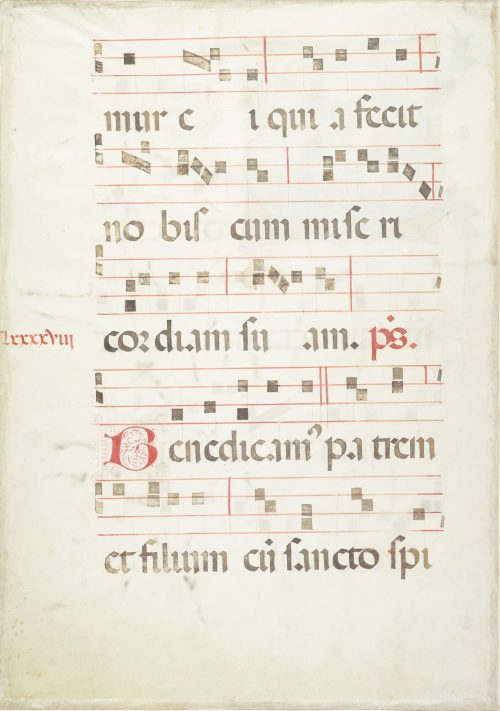 mur e i qui a fecit
no bis cum mise ri
cordiam su am. ps.
lxxxxviii
Benedicam⁹ patrem
et filium cū sancto spi